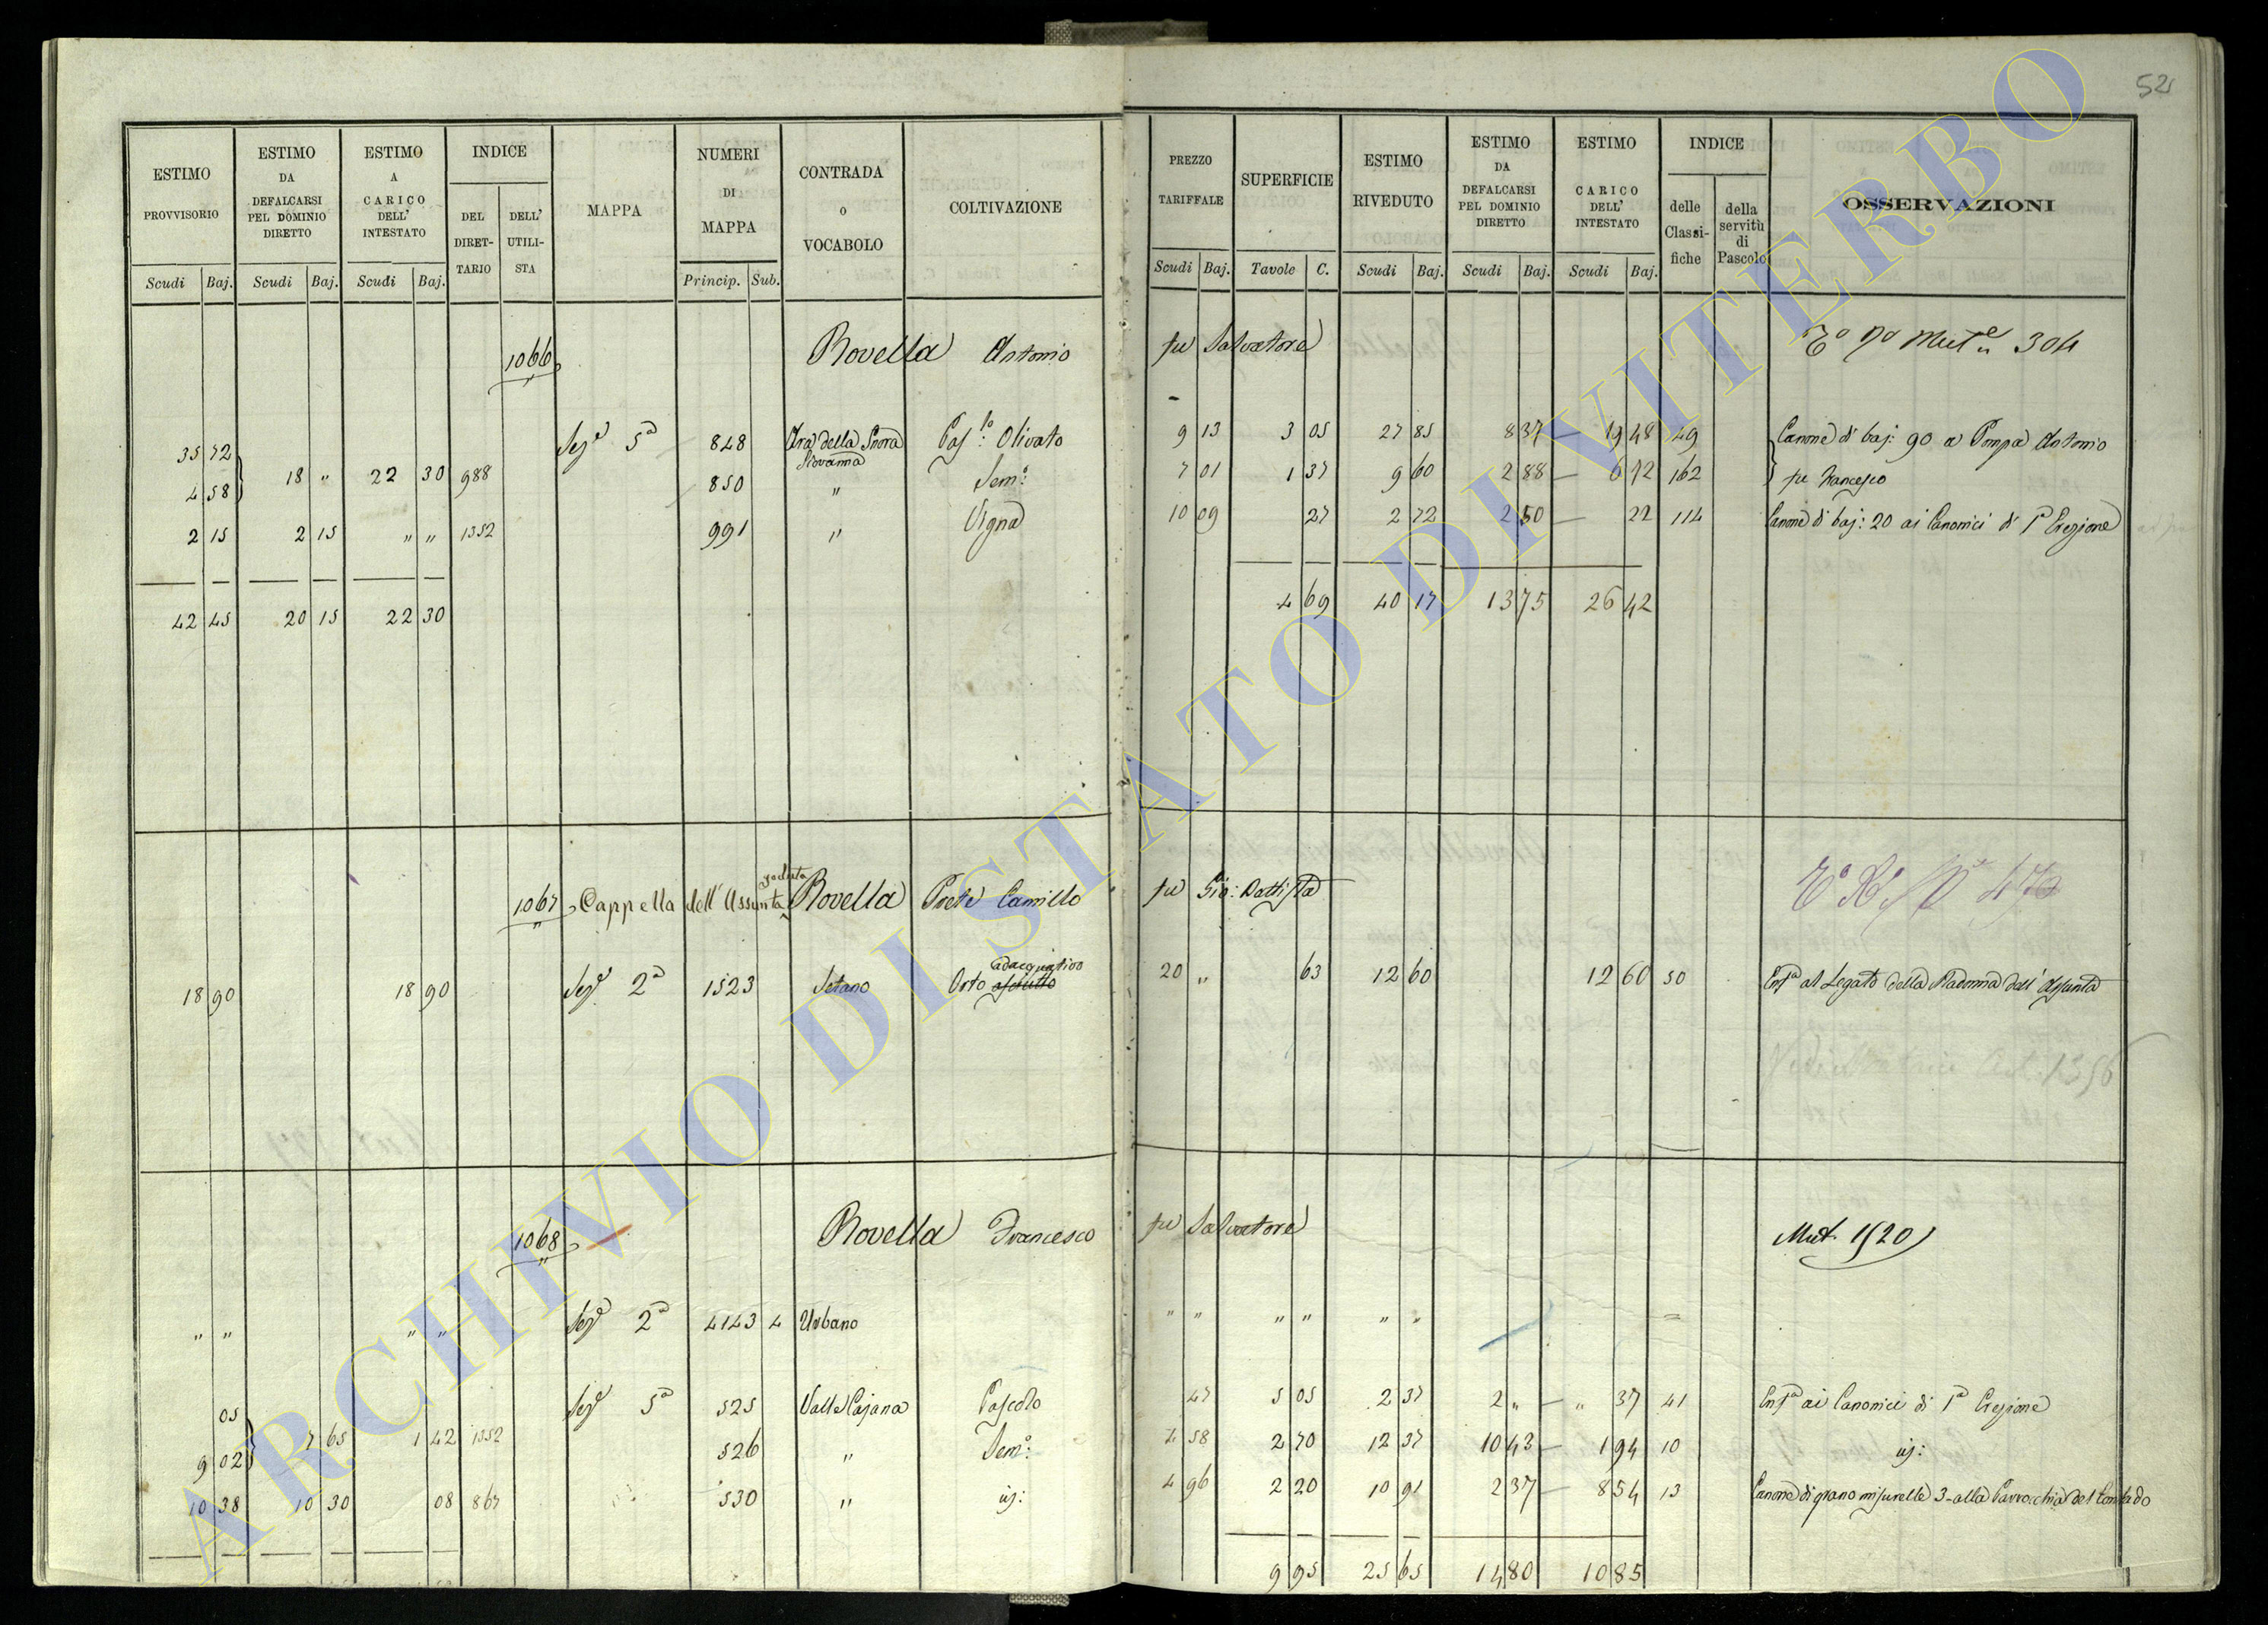 52
ESTIMO PROVVISORIO
Scudi Baj.
ESTIMO DA DEFALCARSI PEL DOMINIO DIRETTO
Scudi Baj.
ESTIMO A CARICO DELL' INTESTATO
Scudi Baj.
INDICE
DEL DIRET-TARIO
DELL' UTILI-STA
MAPPA
NUMERI DI MAPPA
Princip. Sub.
CONTRADA o VOCABOLO
COLTIVAZIONE
PREZZO TARIFFALE
Scudi Baj.
SUPERFICIE
Tavole C.
ESTIMO RIVEDUTO
Scudi Baj.
ESTIMO DA DEFALCARSI PEL DOMINIO DIRETTO
Scudi Baj.
ESTIMO CARICO DELL' INTESTATO
Scudi Baj.
INDICE
delle Classi-fiche
della servitù di Pascolo
OSSERVAZIONI
1066 Rovella Antonio fu Salvatore 304
35 72 Sez.e 5a 848 Ara della Snora Giovanna Pas.lo Olivato 9 13 3 05 27 85 8 37 19 48 49 Canone di baj: 90 a Pompa Antonio
4 58 18 " 22 30 988 850 " Sem.o 7 01 1 37 9 60 2 88 6 72 162 fu Francesco
2 15 2 15 " " 1352 991 " Vigna 10 09 27 2 72 2 50 22 114 Canone di baj: 20 ai Canonici di 1a Erezione
42 45 20 15 22 30 4 69 40 17 13 75 26 42
1067 Cappella dell'Assunta goduta Rovella Prete Camillo fu Gio: Battista
18 90 18 90 Sez.e 2a 1523 Setano Orto asciutto adacquativo 20 " 63 12 60 12 60 50 Enf.a al Legato della Madonna dell'Assunta
Art. 1356
1068 Rovella Francesco fu Salvatore Mut. 1520
" " " " Sez.e 2a 4143 4 Urbano " " " " " "
05 Sez.e 5a 525 Valle Cajana Pascolo 47 5 05 2 37 2 " " 37 41 Enf.a ai Canonici di 1a Erezione
9 02 7 65 1 42 1352 526 " Sem.o 4 58 2 70 12 37 10 43 1 94 10 id:
10 38 10 30 08 867 530 " id: 4 96 2 20 10 91 2 37 8 54 13 Canone di grano misurelle 3 alla Parrocchia del Contado
9 95 25 65 14 80 10 85
ARCHIVIO DI STATO DI VITERBO